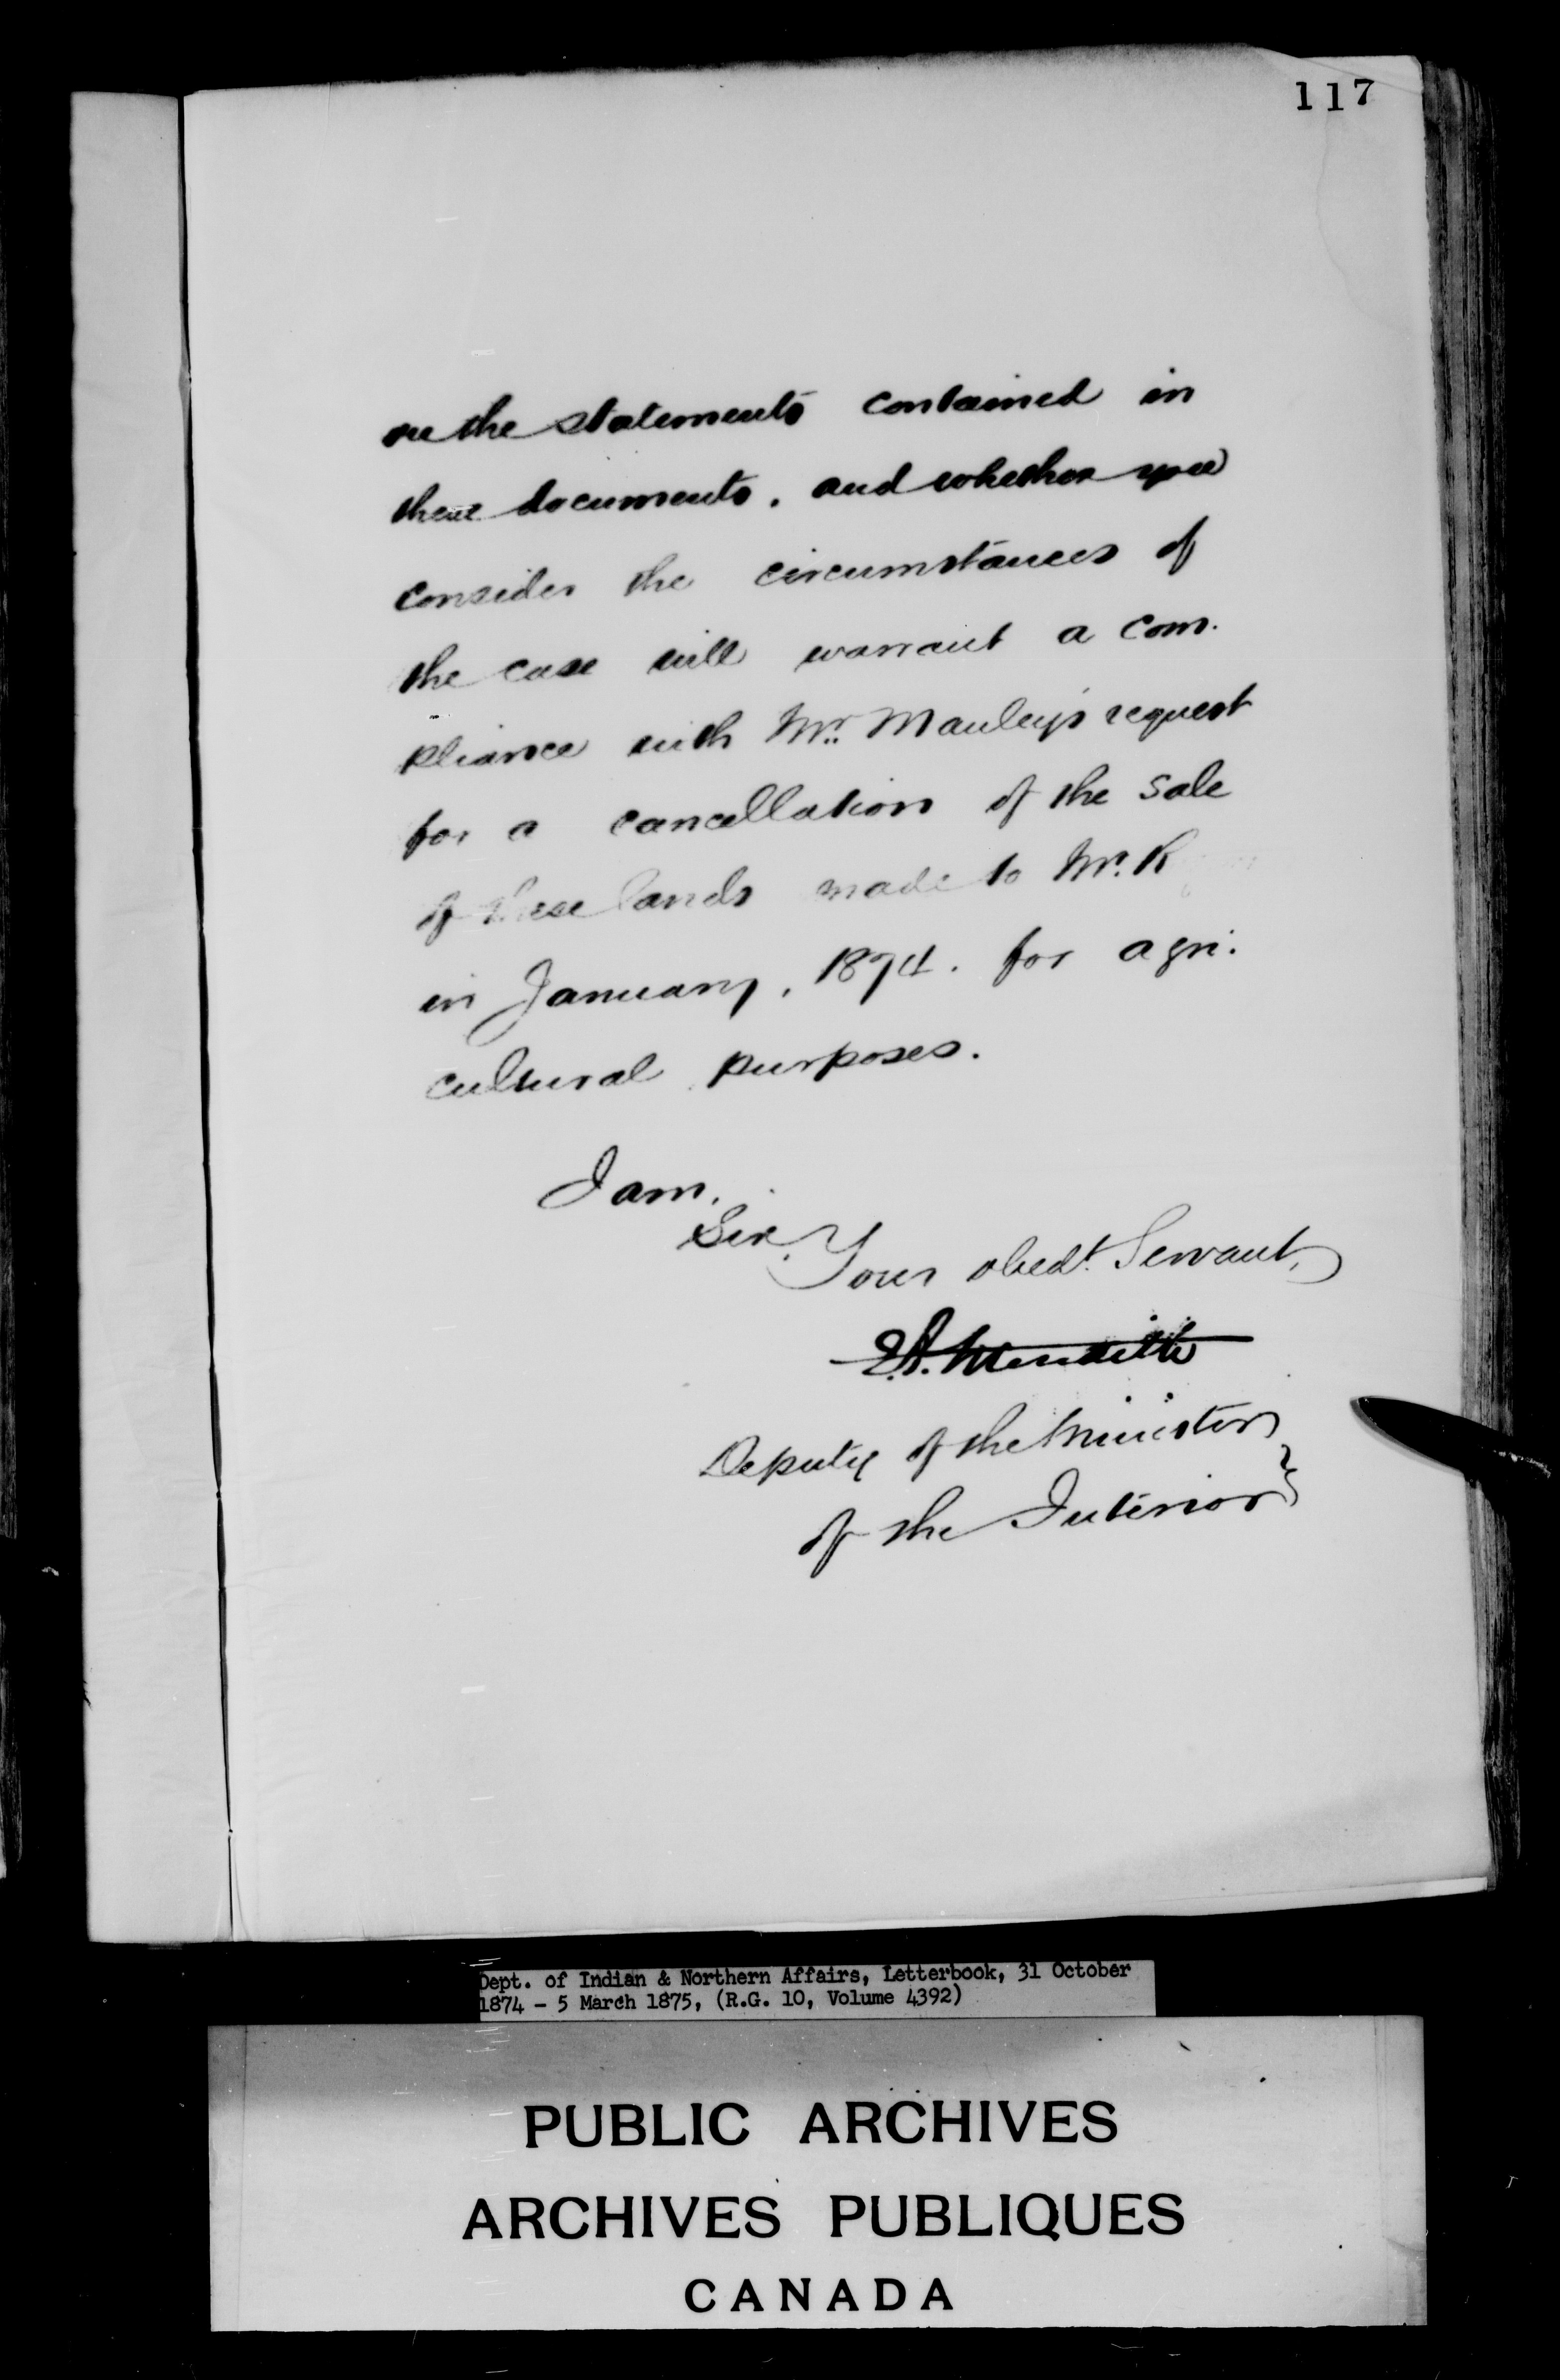 117
on the statements contained in
these documents, and whether you
consider the circumstances of
the case will warrant a com-
pliance with Mr. Manley's request
for a cancellation of the sale
of these lands made to Mr. R
in January, 1874. for agri-
cultural purposes.
I am,
Sir,
Your obedt. Servant,
E.A. Meredith
Deputy of the Minister
of the Interior
Dept. of Indian & Northern Affairs, Letterbook, 31 October
1874 - 5 March 1875, (R.G. 10, Volume 4392)
PUBLIC ARCHIVES
ARCHIVES PUBLIQUES
CANADA